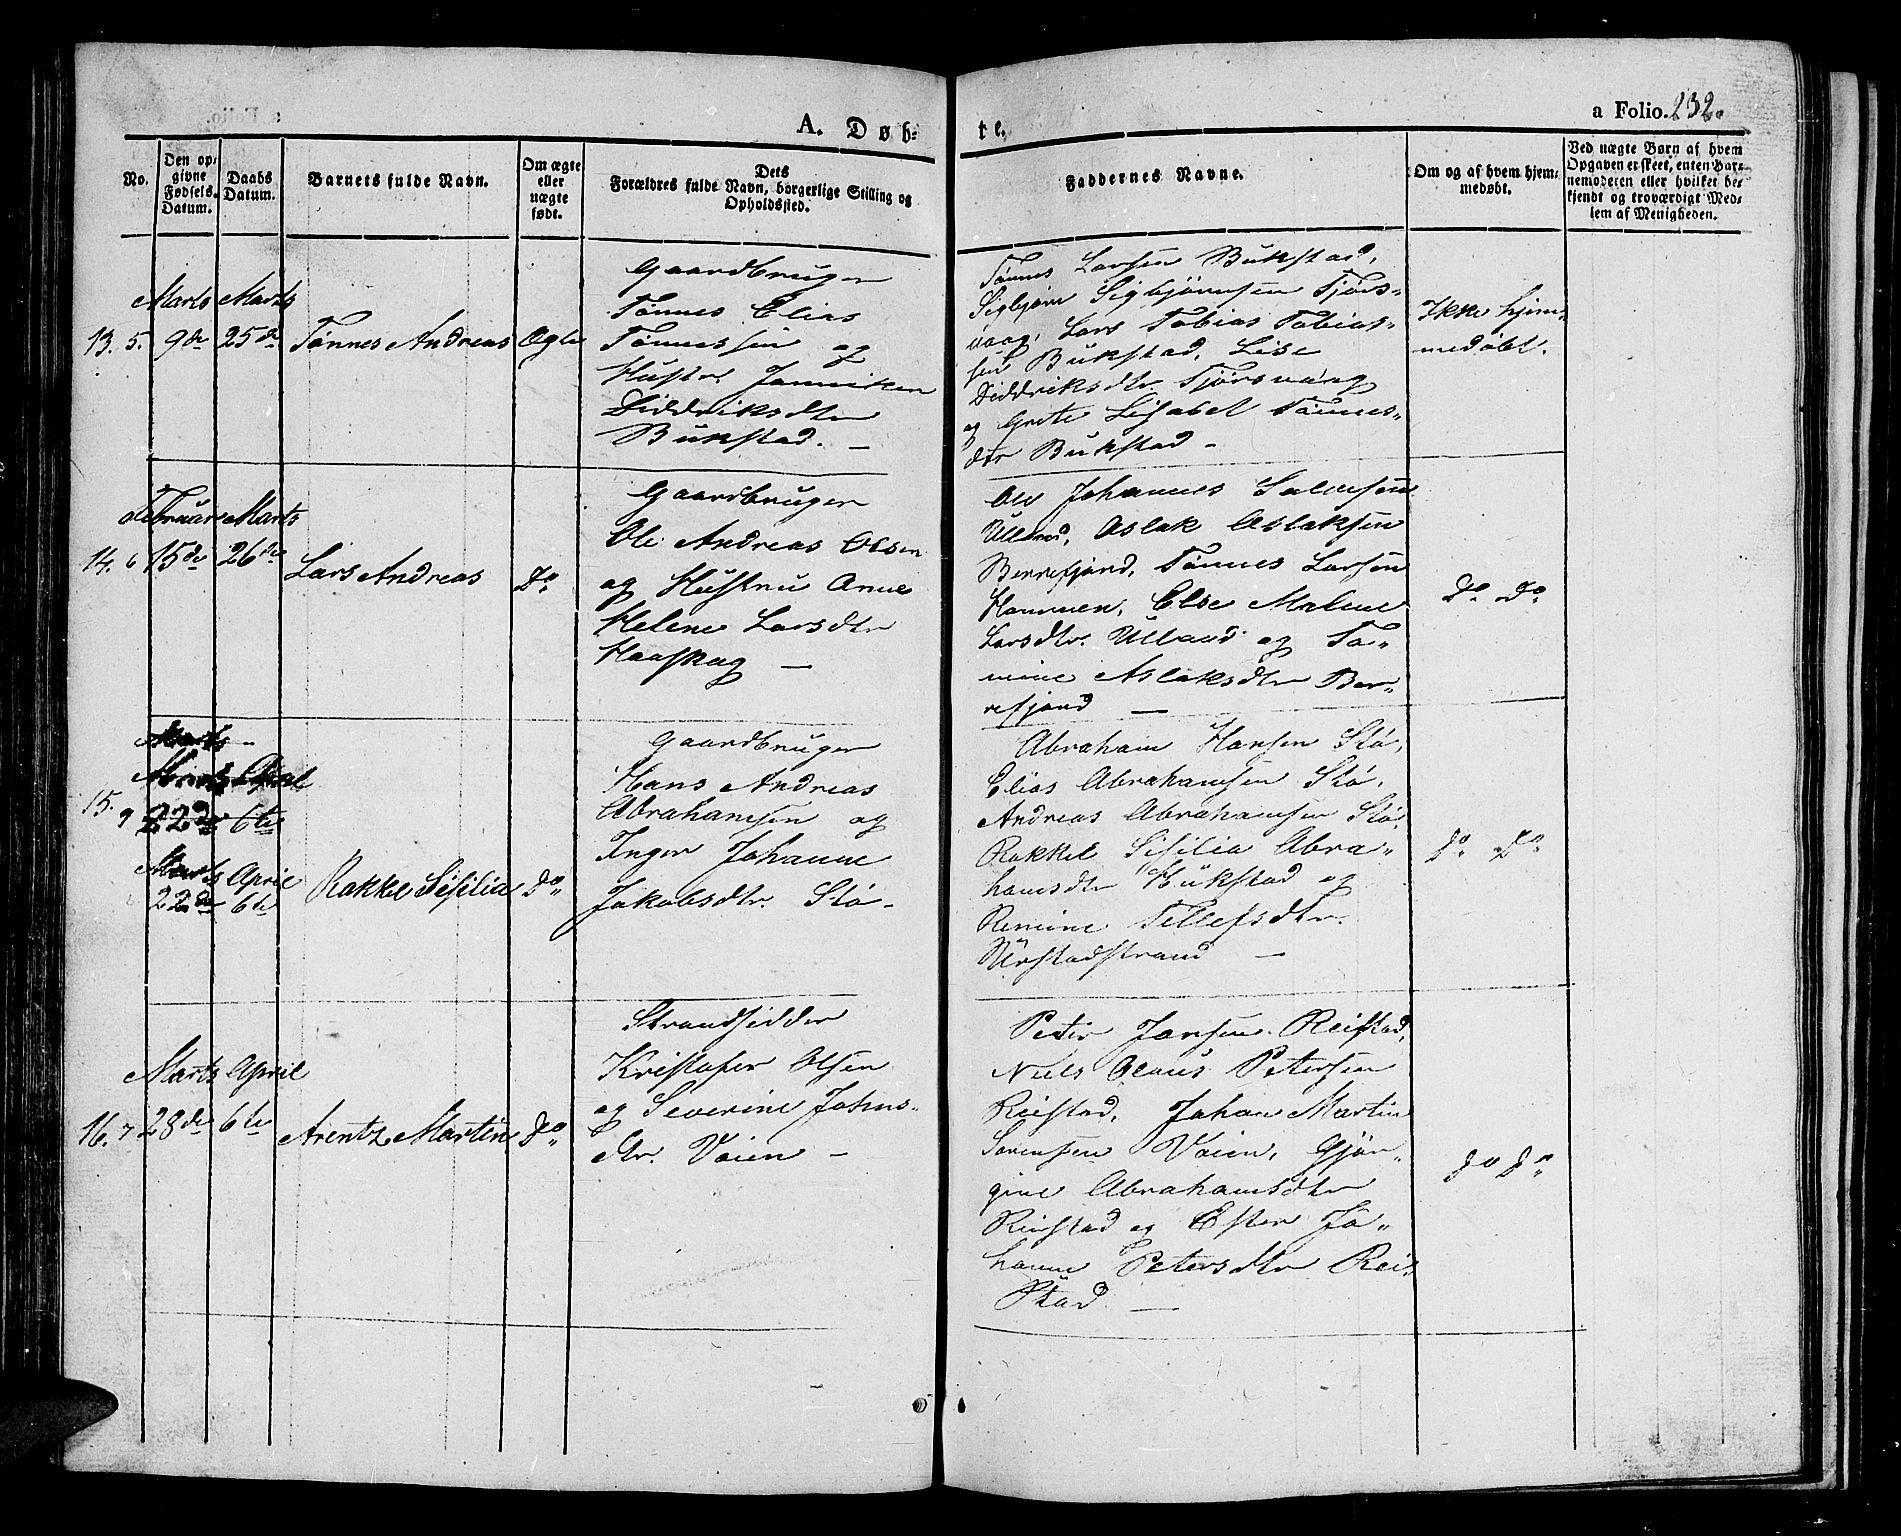 A. Døb-
te.
a Folio. 232.
No.
Den op-
givne
Fødsels-
Datum.
Daabs
Datum.
Barnets fulde Navn.
Om ægte
eller
uægte
født.
Dets
Forældres fulde Navn, borgerlige Stilling og
Opholdssted.
Faddernes Navne.
Om og af hvem hjem-
medøbt.
Ved uægte Børn af hvem
Opgaven er skeet, enten Bar-
nemoderen eller hvilket be-
kjendt og troværdigt Med-
lem af Menigheden.
13. 5.
Marts
9de
Marts
25de
Tønnes Andreas
Ægte
Gaardbruger
Tønnes Elias
Tønnessen og
Hustr. Janniken
Diddriksdtr
Bukstad. —
Tønnes Larsen Bukstad,
Sigbjørn Sigbjørnsen Tjørs-
vaag, Lars Tobias Tobias-
sen Bukstad, Lise
Diddriksdtr Tjørsvaag
og Grete Lisabet Tønnes-
dtr Bukstad —
Ikke hjem-
medøbt.
14. 6
Februar
15de
Marts
26de
Lars Andreas
Do
Gaardbruger
Ole Andreas Olsen
og Hustru Anne
Helene Larsdtr
Haaskag —
Ole Johannes Salvesen
Ulland, Aslak Aslaksen
Berrefjord, Tønnes Larsen
Hammen, Else Malene
Larsdtr. Ulland og To-
mine Aslaksdtr Ber-
refjord —
Do Do
15. 9
Marts
Marts April
22de 6te
Marts
22de
April
6te
Rakkel Sisilia
Do
Gaardbruger
Hans Andreas
Abrahamsen og
Inger Johanne
Jakobsdtr. Stø.
Abraham Hansen Stø,
Elias Abrahamsen Stø,
Andreas Abrahamsen Stø,
Rakkel Sisilia Abra-
hamsdtr Bukstad og
Remine Tellefsdtr.
Urstadstrand —
Do Do
16. 7
Marts
28de
April
6te
Arentz Martin
Do
Strandsidder
Kristofer Olsen
og Severine Johns-
dtr. Vaien —
Peter Jansen Reistad,
Niels Olaus Petersen
Reistad, Johan Martin
Sørensen Vaien, Gjør-
gine Abrahamsdtr
Reistad og Ester Jo-
hanne Petersdtr Rei-
stad. —
Do Do